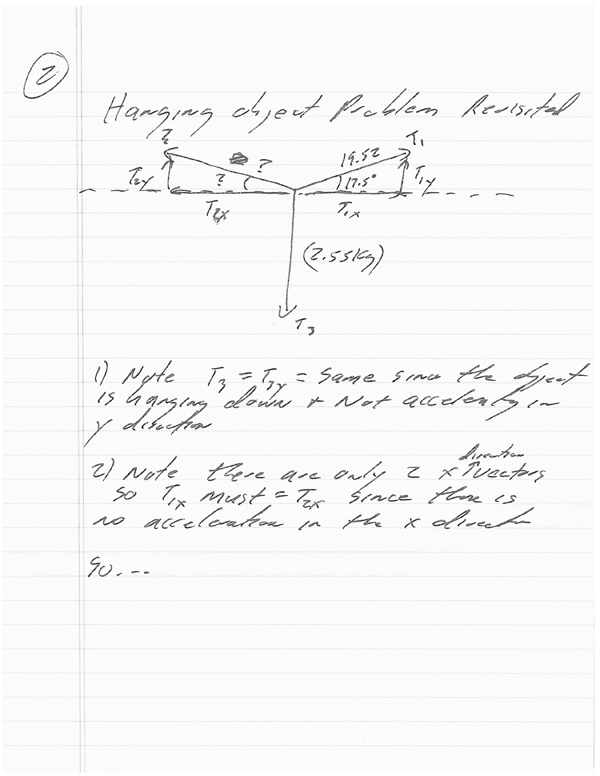 2
Hanging object Problem Revisited
? T1
? 19.52
T2y ? 17.5° T1y
T2x T1x
(2.55kg)
T3
1) Note T3 = T3y = Same since the object
is hanging down + Not acceleratg in
y direction
2) Note there are only 2 x direction vectors
so T1x must = T2x since there is
no acceleration in the x direction
So...